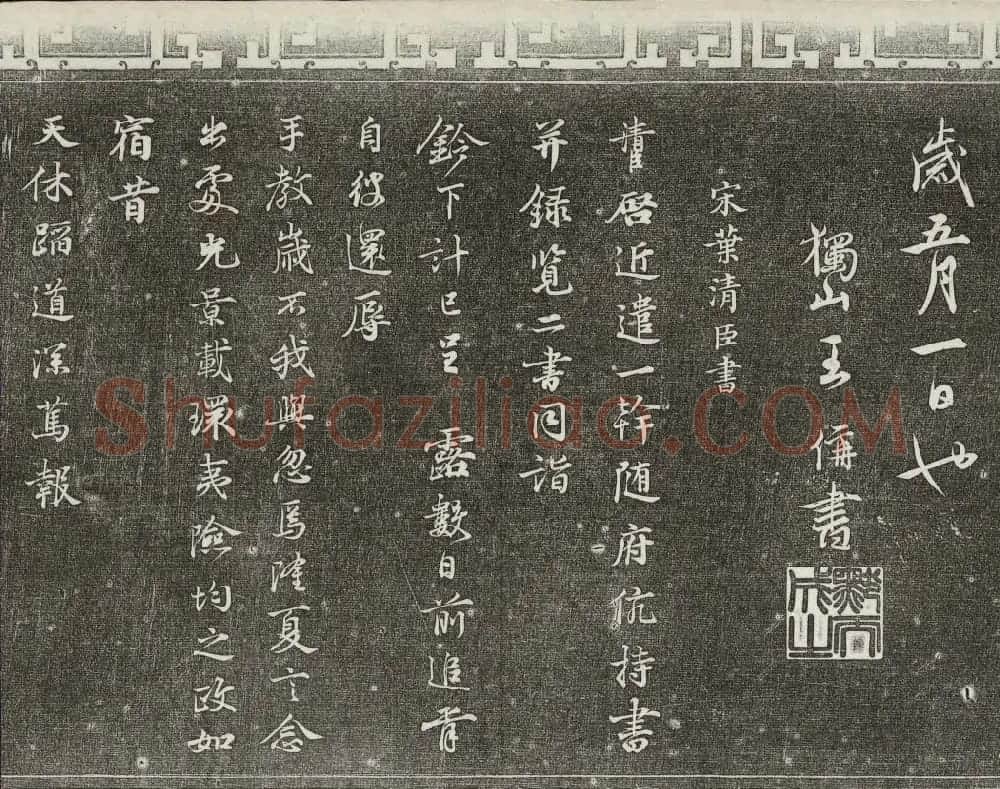 歲五月一日也
獨山王俌書
宋葉清臣書
清臣啓近遣一幹随府伉持書
并録覧二書同詣
鈴下計已呈露數日前追胥
自彼還辱
手教歲不我與忽焉隆夏言念
出處光景載環夷險均之政如
宿昔
天休蹈道深篤報
Shufaziliao.COM